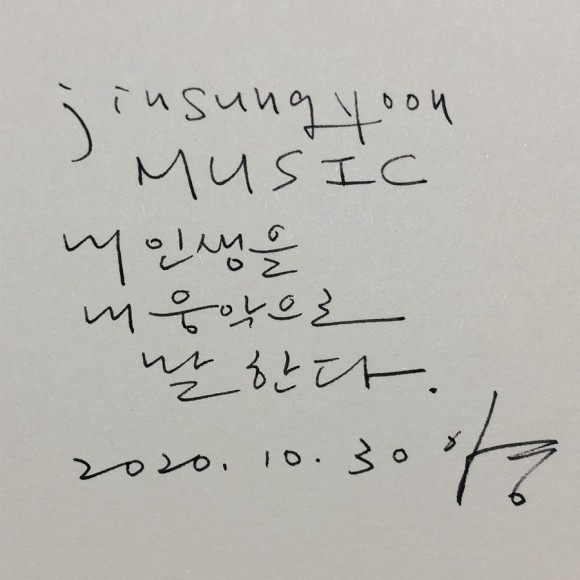 jinsungyoon
MUSIC
내 인생을
내 음악으로
말 한다.
2020. 10. 30